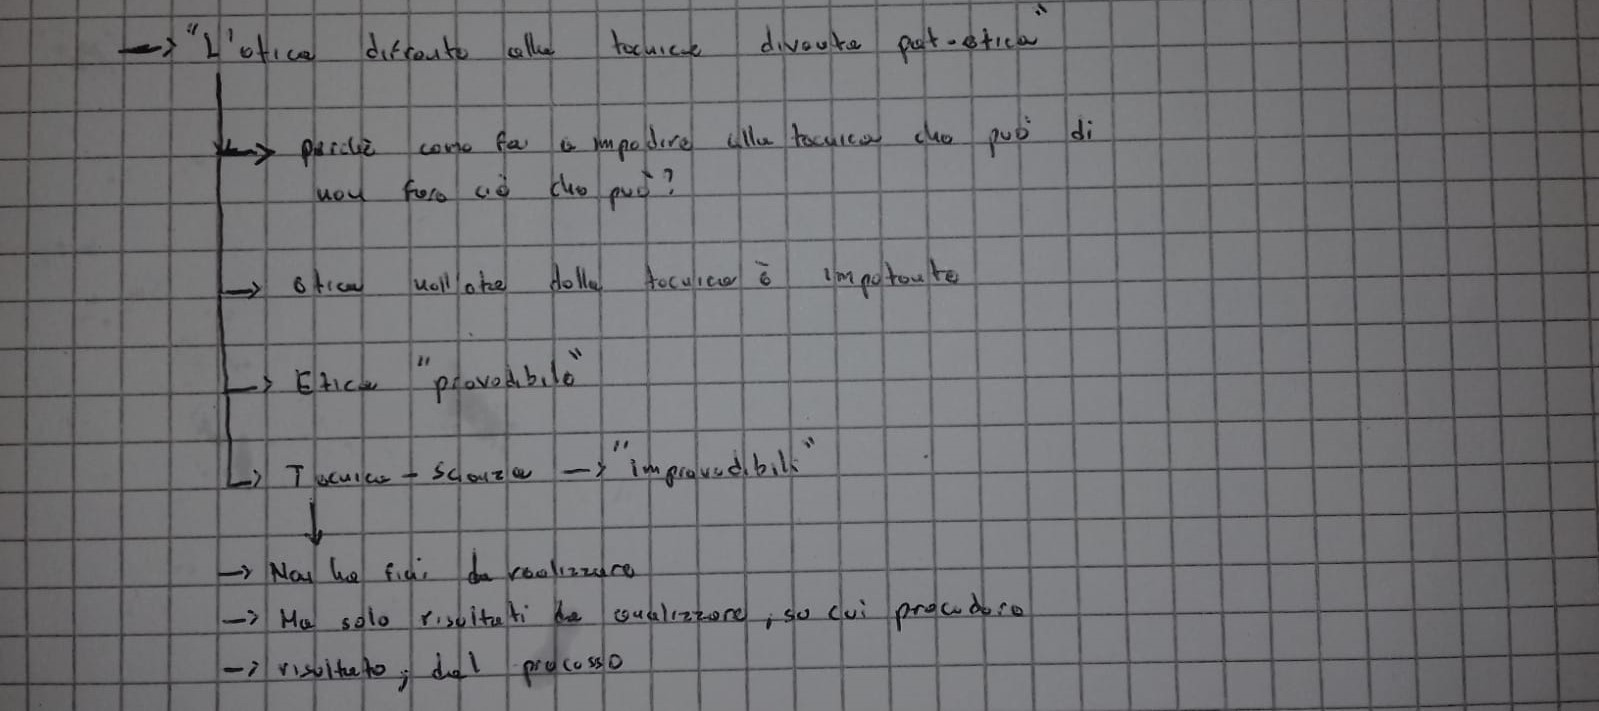 → "L'etica difronte alla tecnica diventa pat-etica"
→ perchè come fa a impedire alla tecnica che può di
non fare ciò che può?
→ etica nell'età della tecnica è impotente
→ Etica "prevedibile"
→ Tecnica - Scienza → "imprevedibili"
↓
→ Non ha fini da realizzare
→ Ma solo risultati da analizzare, su cui procedere
→ risultato, dal processo